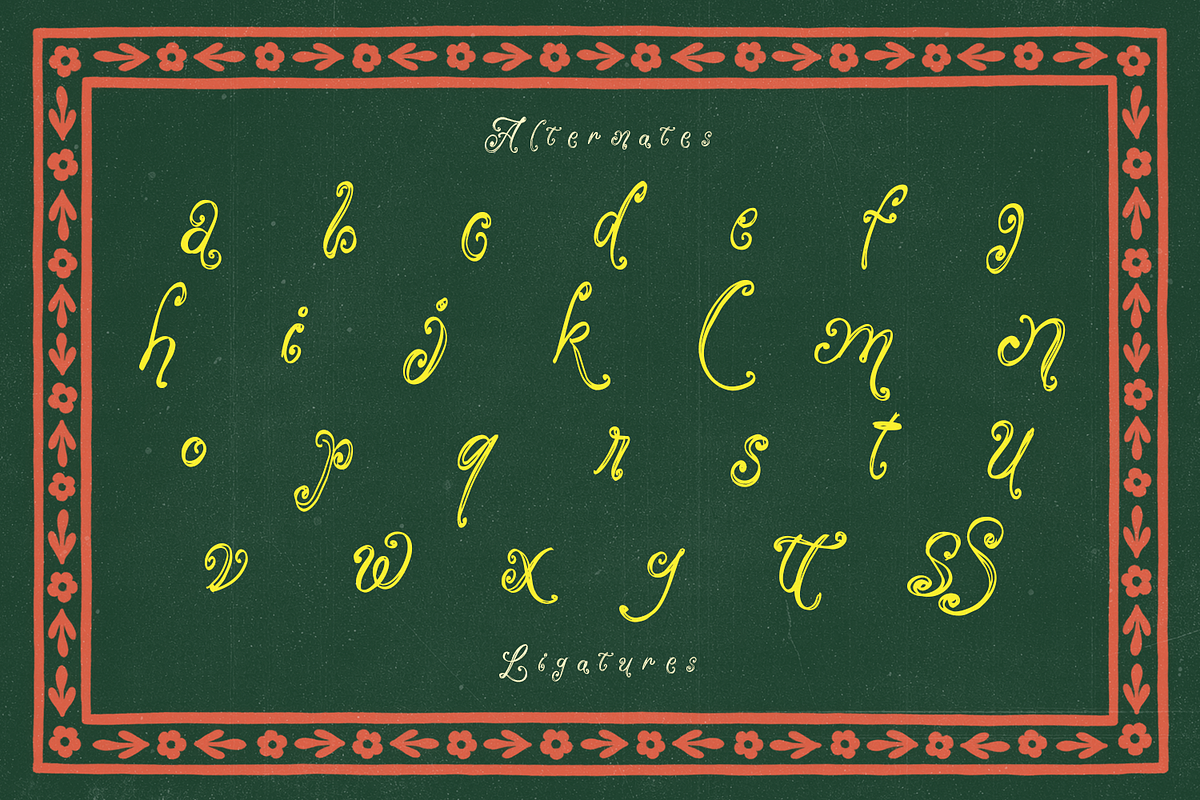 Alternates
a b c d e f g
h i j k l m n
o p q r s t u
v w x y tt ss
Ligatures